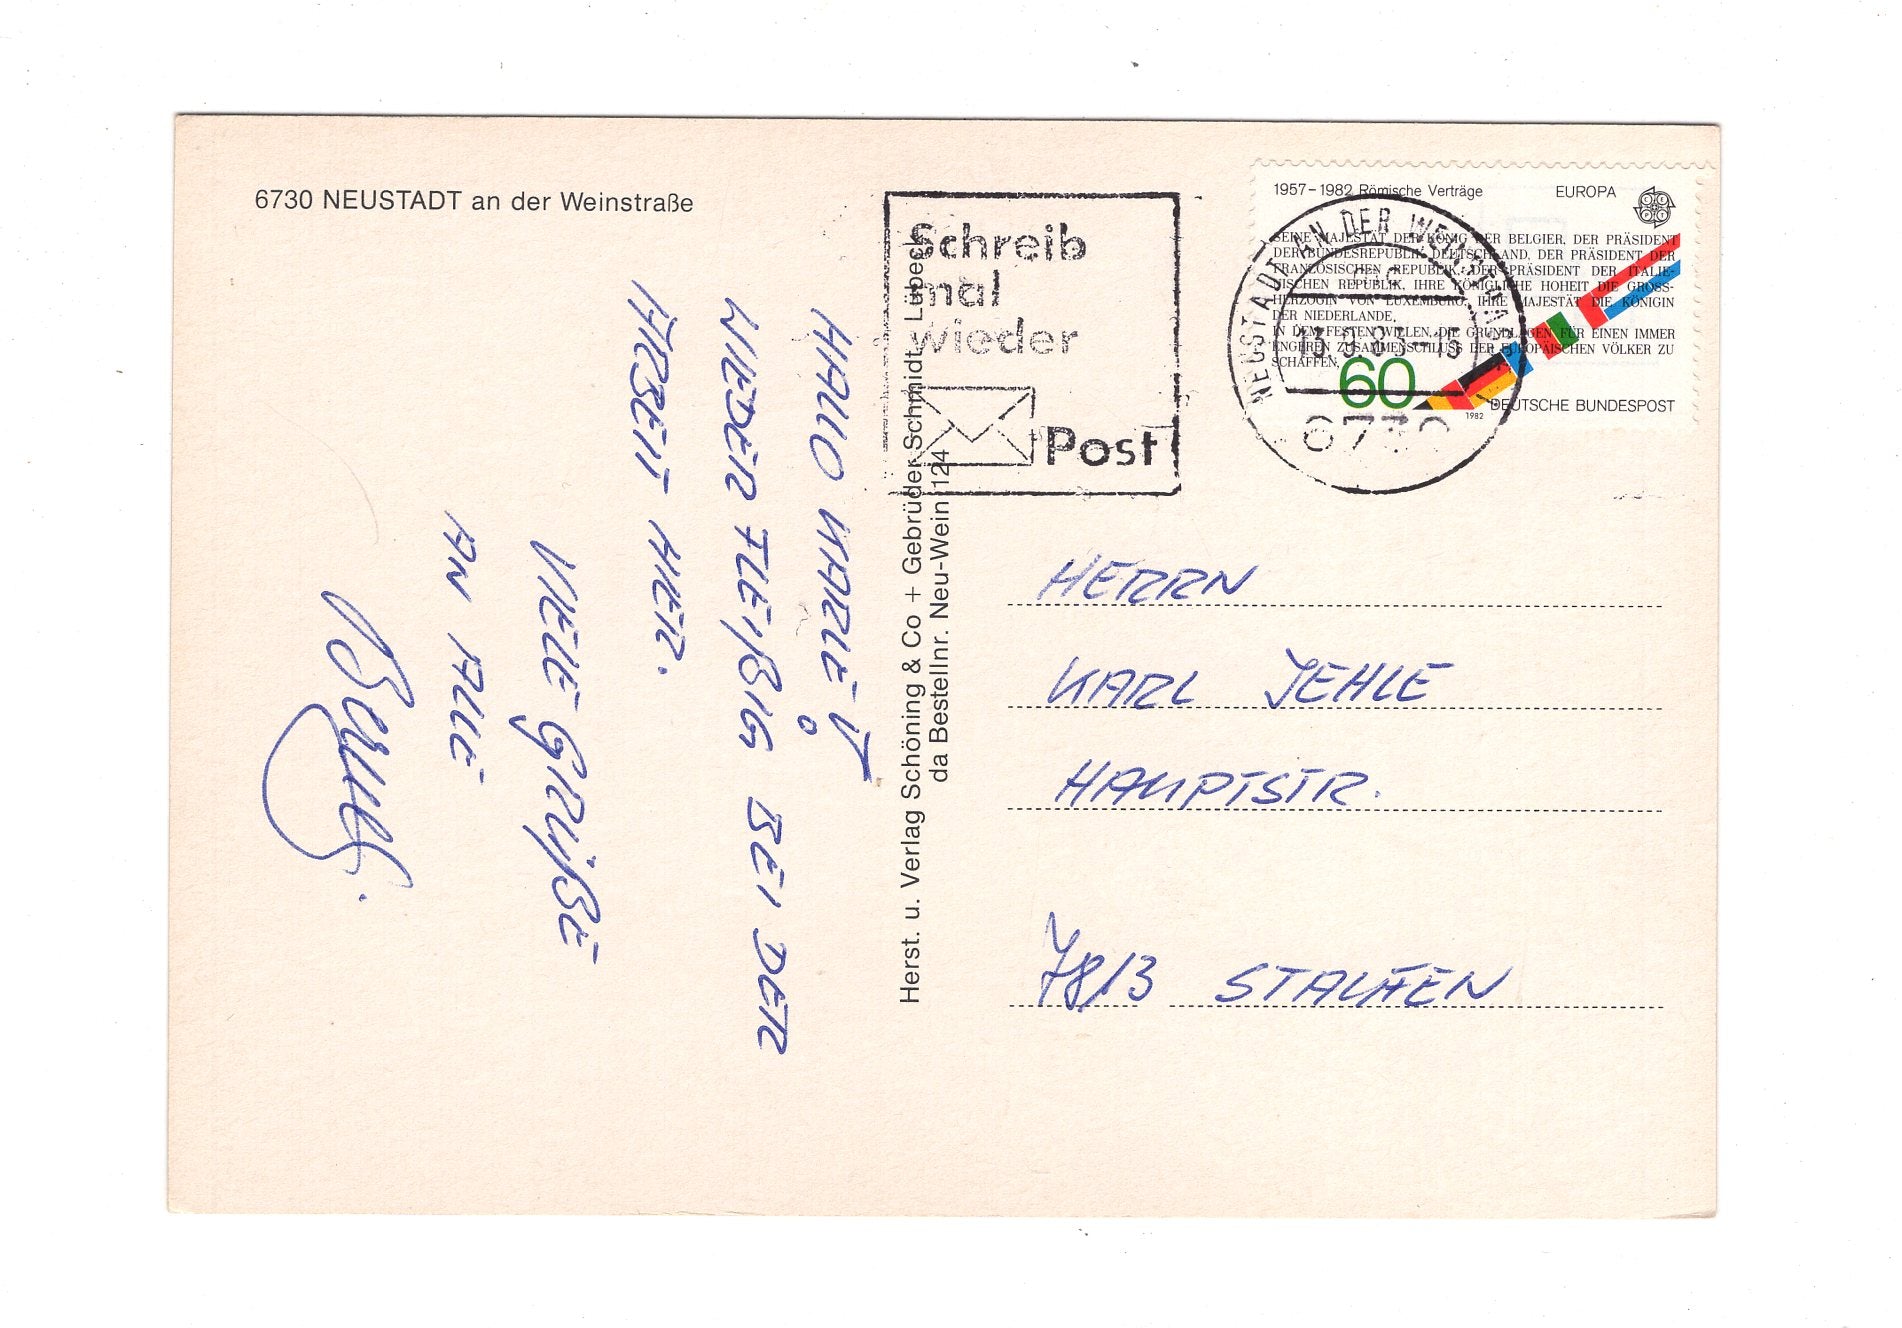 6730 NEUSTADT an der Weinstraße
Schreib
mal
wieder
Post
1957–1982 Römische Verträge EUROPA
CEPT
SEINE MAJESTÄT DER KÖNIG DER BELGIER, DER PRÄSIDENT
DER BUNDESREPUBLIK DEUTSCHLAND, DER PRÄSIDENT DER
FRANZÖSISCHEN REPUBLIK, DER PRÄSIDENT DER ITALIE-
NISCHEN REPUBLIK, IHRE KÖNIGLICHE HOHEIT DIE GROSS-
HERZOGIN VON LUXEMBURG, IHRE MAJESTÄT DIE KÖNIGIN
DER NIEDERLANDE,
IN DEM FESTEN WILLEN, DIE GRUNDLAGEN FÜR EINEN IMMER
ENGEREN ZUSAMMENSCHLUSS DER EUROPÄISCHEN VÖLKER ZU
SCHAFFEN,
60
1982
DEUTSCHE BUNDESPOST
NEUSTADT AN DER WEINSTRASSE
6730
HALLO KARLE!
WIEDER FLEIßIG BEI DER
ARBEIT HIER.
VIELE GRÜßE
AN ALLE
Herst. u. Verlag Schöning & Co + Gebrüder Schmidt - Lübeck
da Bestellnr. Neu-Wein 124
HERRN
KARL JEHLE
HAUPTSTR.
7813 STAUFEN